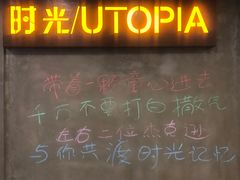 时光/UTOPIA
带着一颗童心进去
千万不要打白撒气
左右二位杰克逊
与你共渡时光记忆